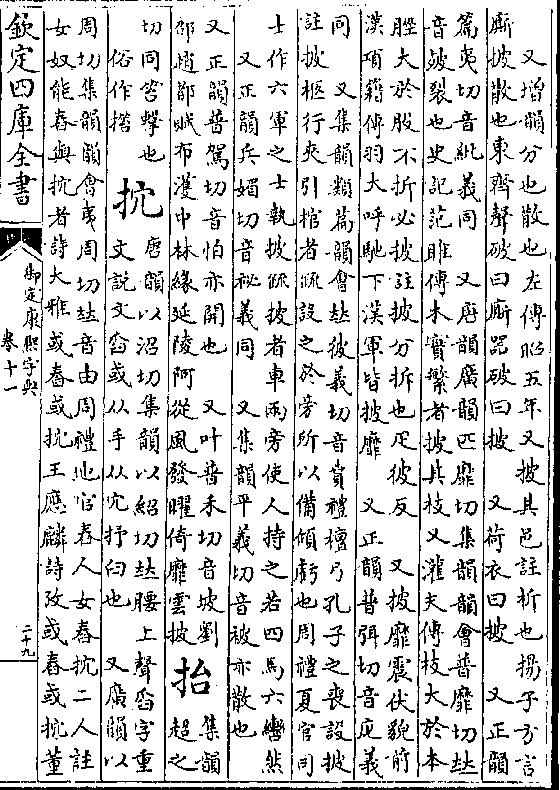 又增韻分也散也左傳昭五年又披其邑註析也揚子方言
廝披散也東齊聲破曰廝器破曰披　又荷衣曰披　又正韻
篇夷切音紕義同　又唐韻廣韻匹靡切集韻韻會普靡切𠀤
音㱟裂也史記范雎傳木實繁者披其枝又灌夫傳枝大於本
脛大於股不折必披註披分折也疋彼反　又披靡震伏貌前
漢項籍傳羽大呼馳下漢軍皆披靡　又正韻普弭切音庀義
同　又集韻類篇韻會𠀤彼義切音賁禮檀弓孔子之喪設披
註披柩行夾引棺者疏設之於旁所以備傾虧也周禮夏官司
士作六軍之士執披疏披者車兩旁使人持之若四馬六轡然
又正韻兵媚切音祕義同　又集韻平義切音被亦散也
又正韻普駕切音怕亦開也　又叶普禾切音坡劉
邵趙都賦布濩中林緣延陵阿從風發曜猗靡雲披
抬　集韻超之
切同笞擊也
俗作擡
抭　唐韻以沼切集韻以紹切𠀤腰上聲舀字重
文說文舀或从手从宂抒臼也　又廣韻以
周切集韻韻會夷周切𠀤音由周禮地官舂人女舂抭二人註
女奴能舂與抭者詩大雅或舂或抭王應麟詩攷或舂或抭董
欽定四庫全書
御定康熙字典
卷十一
二十九